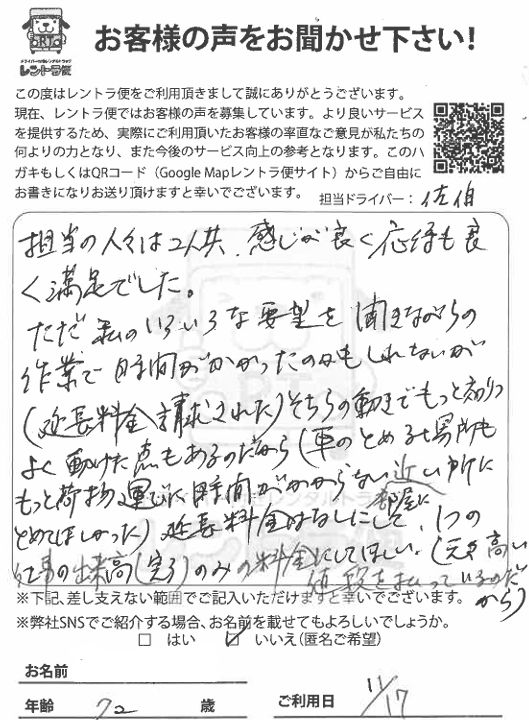 ドライバー付きレンタルトラック
レントラ便
お客様の声をお聞かせ下さい!
この度はレントラ便をご利用頂きまして誠にありがとうございます。
現在、レントラ便ではお客様の声を募集しています。より良いサービス
を提供するため、実際にご利用頂いたお客様の率直なご意見が私たちの
何よりの力となり、また今後のサービス向上の参考となります。このハ
ガキもしくはQRコード（Google Mapレントラ便サイト）からご自由に
お書きになりお送り頂けますと幸いでございます。
担当ドライバー：佐伯
担当の人々は2人共、感じが良く応待も良
く満足でした。
ただ私のいろいろな要望を聞きながらの
作業で時間がかかったのかもしれないが
(延長料金請求された)そちらの動きでもっと効りつ
よく動けた点もあるのだから(車のとめる場所も
もっと荷物運びに時間がかからない近い所に
とめてほしかった)延長料金はなしにして、部屋に1つの
仕事の出来高(完了)のみの料金にしてほしい。(元々高い
値段を払っているのだ
から)
※下記、差し支えない範囲でご記入いただけますと幸いでございます。
※弊社SNSでご紹介する場合、お名前を載せてもよろしいでしょうか。
□ はい ☑ いいえ(匿名ご希望)
お名前
年齢 72 歳 ご利用日 11/17